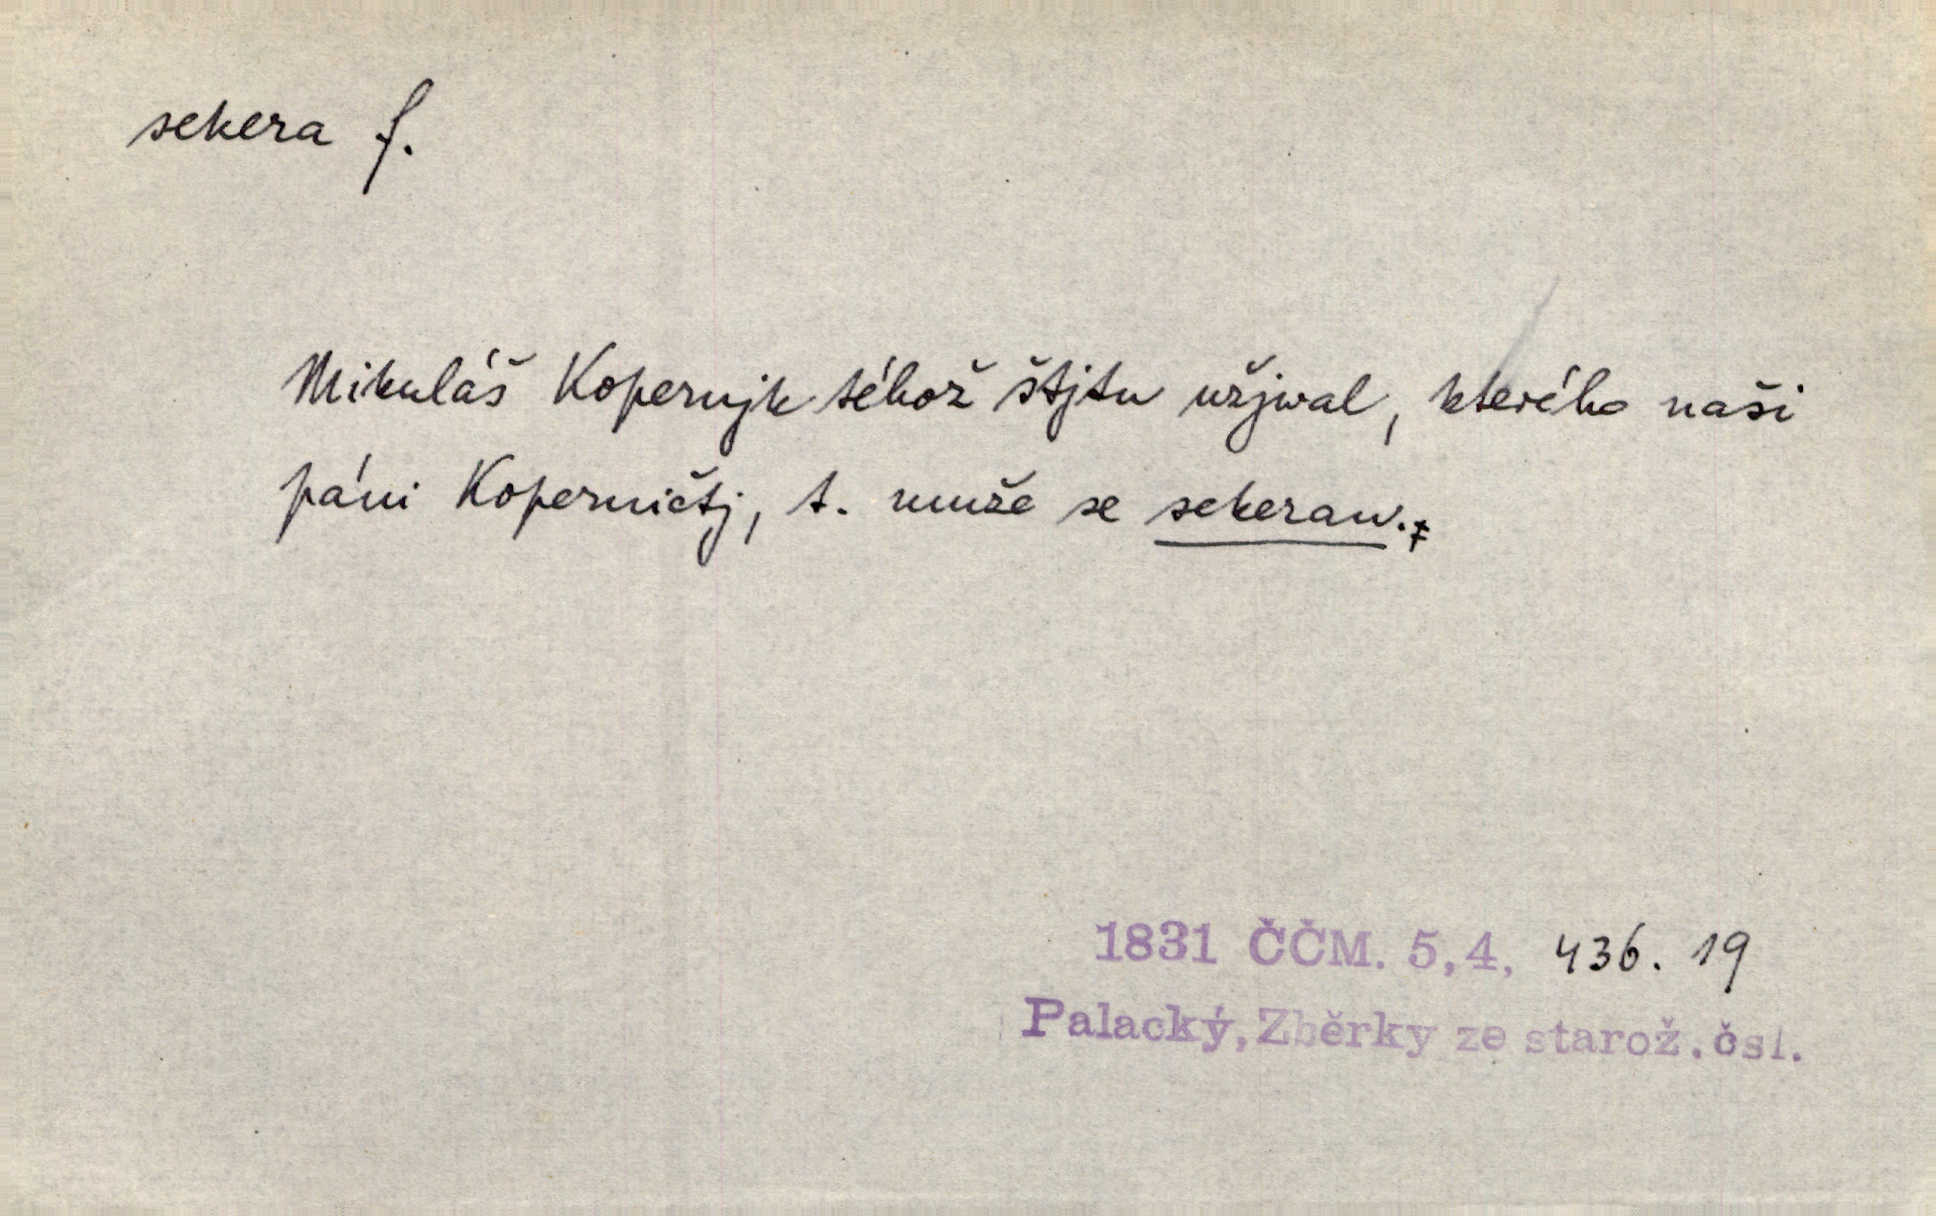 sekera f.
Mikuláš Kopernjk téhož štjtu užjwal, kterého naši
páni Koperničtj, t. muže se sekerau.
1831 ČČM. 5,4, 436. 19
Palacký, Zběrky ze starož. čsl.